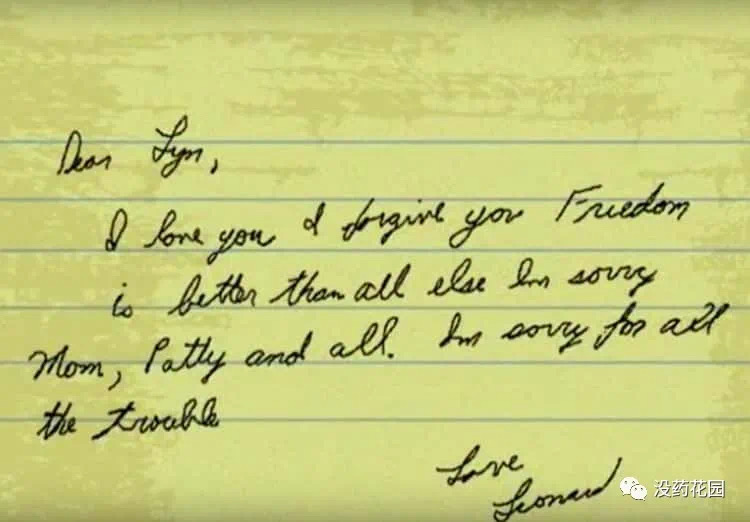 Dear Lyn,
I love you I forgive you Freedom
is better than all else Im sorry
Mom, Patty and all. Im sorry for all
the trouble
Love
Leonard
没药花园